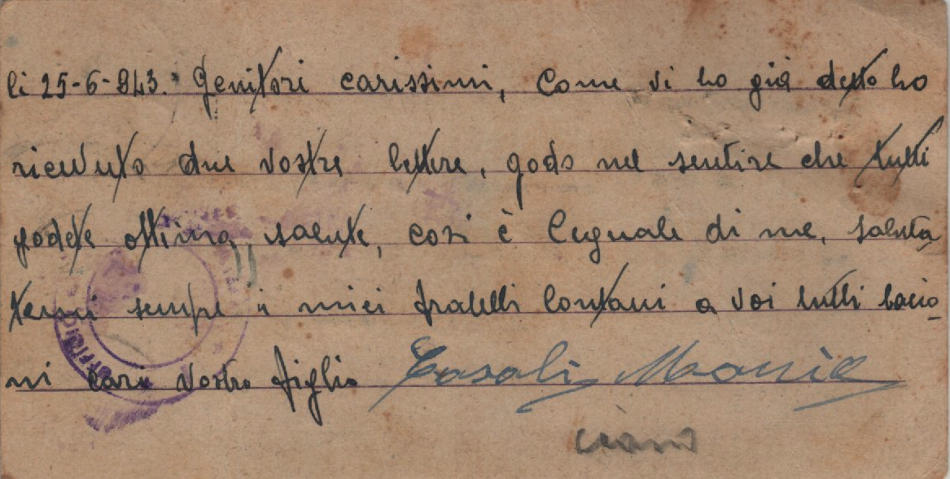 li 25-6-943. Genitori carissimi, Come vi ho già detto ho
ricevuto due vostre lettere, godo nel sentire che tutti
godete ottima, salute, così è l'eguale di me, saluta
temi sempre i miei fratelli lontani a voi tutti bacio-
ni cari vostro figlio Casali
UFFICIO